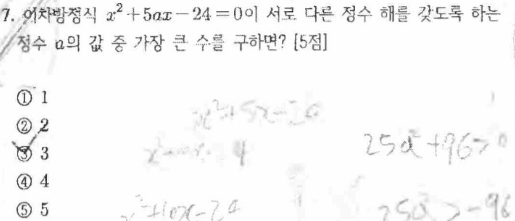 7. 이차방정식 x²+5ax-24=0이 서로 다른 정수 해를 갖도록 하는
정수 a의 값 중 가장 큰 수를 구하면? [5점]
① 1
② 2
③ 3
④ 4
⑤ 5
x²+5x-24
25a²+96>0
x²+10x-24
25a²>-96